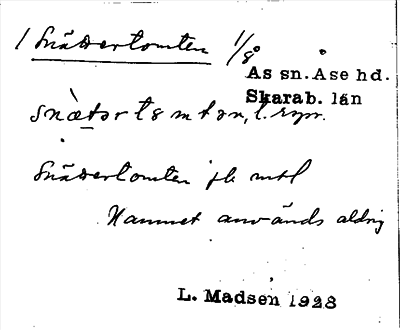 1 Snävertomten 1/8
Ås sn. Åse hd.
Skarab. län
snætərtɷmtən,
Snävertomten jb mtl
Namnet används aldrig
L. Madsen 1928